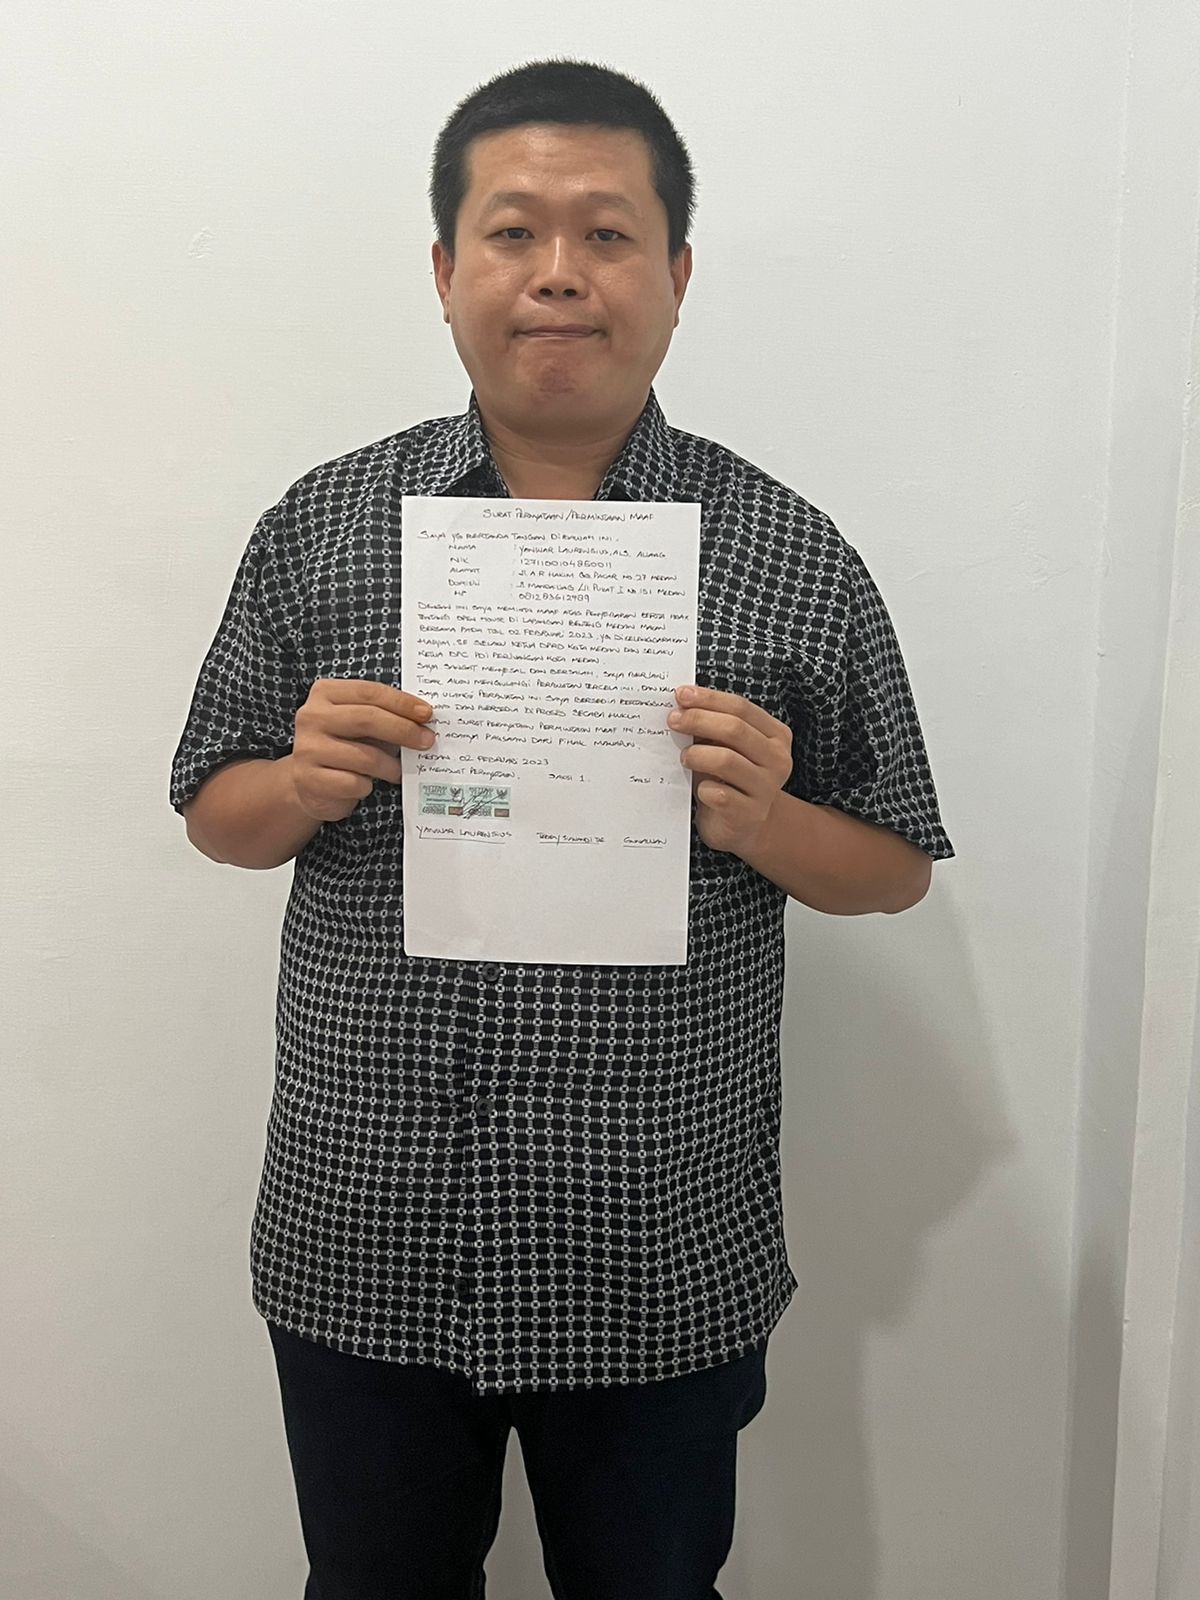 SURAT PERNYATAAN/PERMINTAAN MAAF
SAYA YG BERTANDA TANGAN DIBAWAH INI.
NAMA : YANWAR LAURENSIUS, ALS. ALIANG
NIK : 1271100104860011
ALAMAT : JL. A.R HAKIM GG. PACAR NO. 27 MEDAN
DOMISILI : JL. MANDALA JL. PUKAT I NO. 151 MEDAN
HP : 081283612989
DENGAN INI SAYA MEMINTA MAAF ATAS PENYEBARAN BERITA HOAX
TENTANG OPEN HOUSE DI LAPANGAN BENTENG MEDAN MAKAN
BERSAMA PADA TGL 02 FEBRUARI 2023. YG DISELENGGARAKAN
HASYIM, SE SELAKU KETUA DPRD KOTA MEDAN DAN SELAKU
KETUA DPC PDI PERJUANGAN KOTA MEDAN.
SAYA SANGAT MENYESAL DAN BERSALAH, SAYA BERJANJI
TIDAK AKAN MENGULANGI PERBUATAN TERCELA INI, DAN KALAU
SAYA ULANGI PERBUATAN INI SAYA BERSEDIA BERTANGGUNG
DAN BERSEDIA DIPROSES SECARA HUKUM
SURAT PERNYATAAN PERMINTAAN MAAF INI DIBUAT
ADANYA PAKSAAN DARI PIHAK MANAPUN.
MEDAN 02 FEBRUARI 2023
YG MEMBUAT PERNYATAAN. SAKSI 1. SAKSI 2.
YANWAR LAURENSIUS GUNAWAN